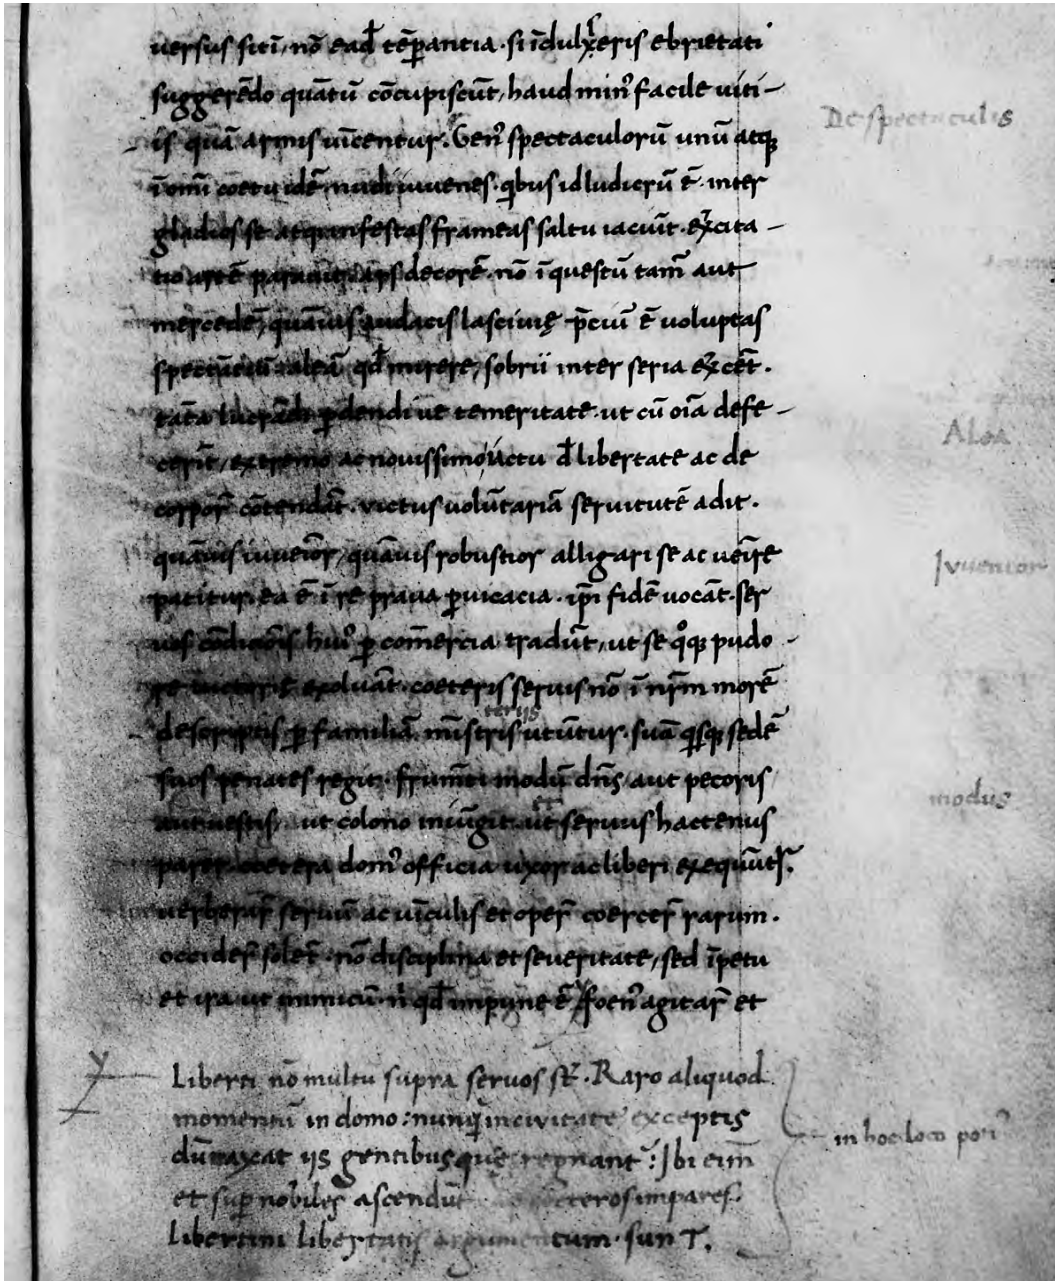 uersus sitī, nō eađ tēꝑantia. si īdulxeris ebrietati
suggerēdo quātū cōcupiscūt, haud min᷒ facile uiti-
is quā armis uīcentur. Gen᷒ spectaculorū unū atqꝫ
De spectaculis
ī omī coetu idē. nudi iuuenes. qbus id ludicrū ē. inter
gladios se atqꝫ infestas frameas saltu iaciūt. exercita-
tio artē parauit. ars decorē. nō ī questū tam̄ aut
mercedē, quāuis audacis lasciuię p̄ciū ē uoluptas
spectātiū. aleā qđ mirere, sobrii inter seria exercēt.
tāta lucrādi ꝑdendi ue temeritate. ut cū oīa defe-
Alea
cerīt, extremo ac nouissimo iactu đ libertate ac de
corpor̄ cōtendāt. victus uolūtariā seruitutē adit.
quāuis iuuenior, quāuis robustior alligari se ac uenire
Iuuenior
patitur. ea ē ī re praua ꝑuicacia. ip̄i fidē uocāt. ser
uos cōdicōīs hui᷒ ꝑ com̄ercia tradūt, ut se qͦqꝫ pudo-
re uictorię exoluāt. coeteris seruis nō ī nr̄m morē
teriis
descriptis ꝑ familiā. mīstris utūtur. suā qsqꝫ sedē
suos penates regit. frum̄ti modū dn̄s, aut pecoris
modus
aut uestis, ut colono iniūgit. ut seruus hactenus
paret. cetera dom᷒ officia uxor ac liberi exequūtur.
uerberar̄ seruū ac uīculis et oper̄ coercer̄ rarum.
occider̄ solēt. nō disciplina et seueritate, sed īpetu
et ira ut inimicū. n̄ qđ impune ē. foen᷒ agitar̄ et
Liberti nō multū supra seruos st̄. Raro aliquod
momentū in domo: nunqͣ̄ in ciuitate exceptis
in hoc loco poni᷒
dūtaxat iis gentibus quę regnant̄: Ibi eim̄
et suꝑ nobiles ascendūt ceteros impares
libertini libertatis argumentum sunt.